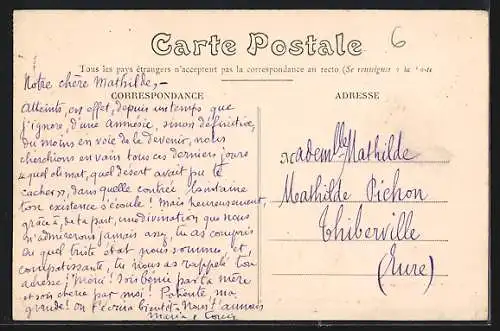 Carte Postale
6
Tous les pays étrangers n'acceptent pas la correspondance en recto (Se renseigner à la Poste
CORRESPONDANCE
ADRESSE
Notre chère Mathilde,-
Atteints, en effet, depuis un temps que
j'ignore, d'une Amnésie, sinon définitive,
du moins en voie de le devenir, nous
cherchions en vain tous ces derniers jours
"quel climat, quel désert avait pu te
cacher", dans quelle contrée lointaine
ton existence s'écoule! Mais heureusement,
grâce à, de ta part, une divination que nous
n'admirerons jamais assez, tu as compris
en quel triste état nous sommes, et
compatissante, tu nous as rappelé ton
adresse; Merci! Sois bénie par ta mère
et son chère par moi! Patiente, ma
grande! On t'écrira bientôt. Nous t'aimons
Marie
Mademlle Mathilde
Mathilde Pichon
Thiberville
(Eure)